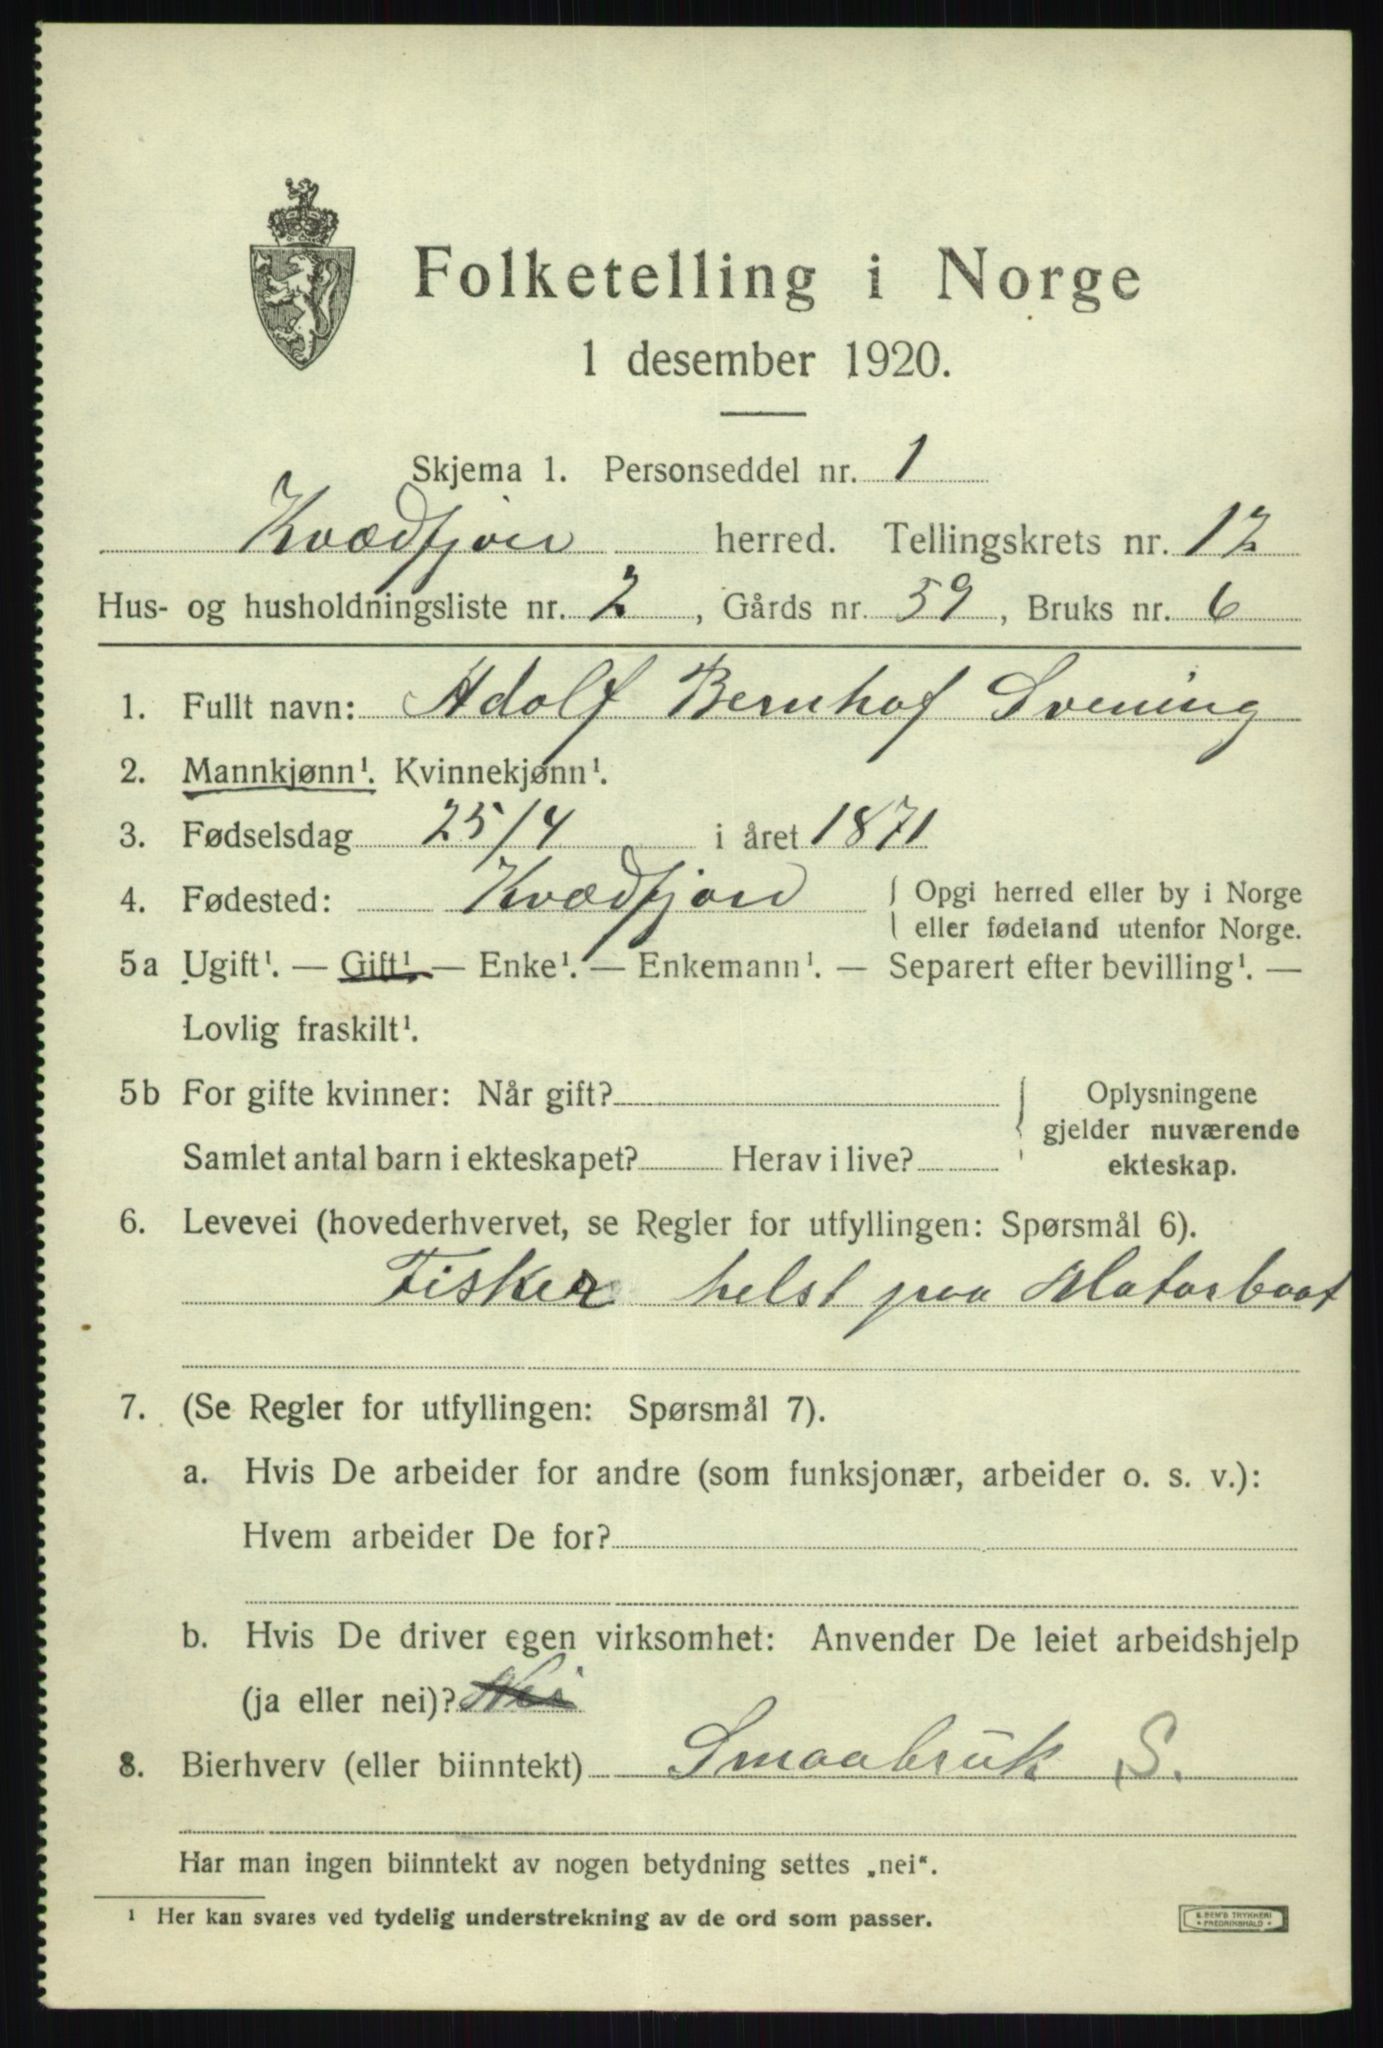 Folketelling i Norge
1 desember 1920.
Skjema 1. Personseddel nr. 1
Kvædfjord herred. Tellingskrets nr. 12
Hus- og husholdningsliste nr. 2, Gårds nr. 59, Bruks nr. 6
1. Fullt navn: Adolf Bernhof Svening
2. Mannkjønn¹. Kvinnekjønn¹.
3. Fødselsdag 25/4 i året 1871
4. Fødested: Kvædfjord { Opgi herred eller by i Norge
eller fødeland utenfor Norge.
5a Ugift¹. — Gift¹ — Enke¹. — Enkemann¹. — Separert efter bevilling¹. —
Lovlig fraskilt¹.
5b For gifte kvinner: Når gift? { Oplysningene
gjelder nuværende
Samlet antal barn i ekteskapet? Herav i live? ekteskap.
6. Levevei (hovederhvervet, se Regler for utfyllingen: Spørsmål 6).
Fisker helst paa Motorbaat
7. (Se Regler for utfyllingen: Spørsmål 7).
a. Hvis De arbeider for andre (som funksjonær, arbeider o. s. v.):
Hvem arbeider De for?
b. Hvis De driver egen virksomhet: Anvender De leiet arbeidshjelp
(ja eller nei)? Nei
8. Bierhverv (eller biinntekt) Smaabruk S.
Har man ingen biinntekt av nogen betydning settes „nei“.
¹ Her kan svares ved tydelig understrekning av de ord som passer.
E. SEM'S TRYKKERI
• FREDRIKSHALD •